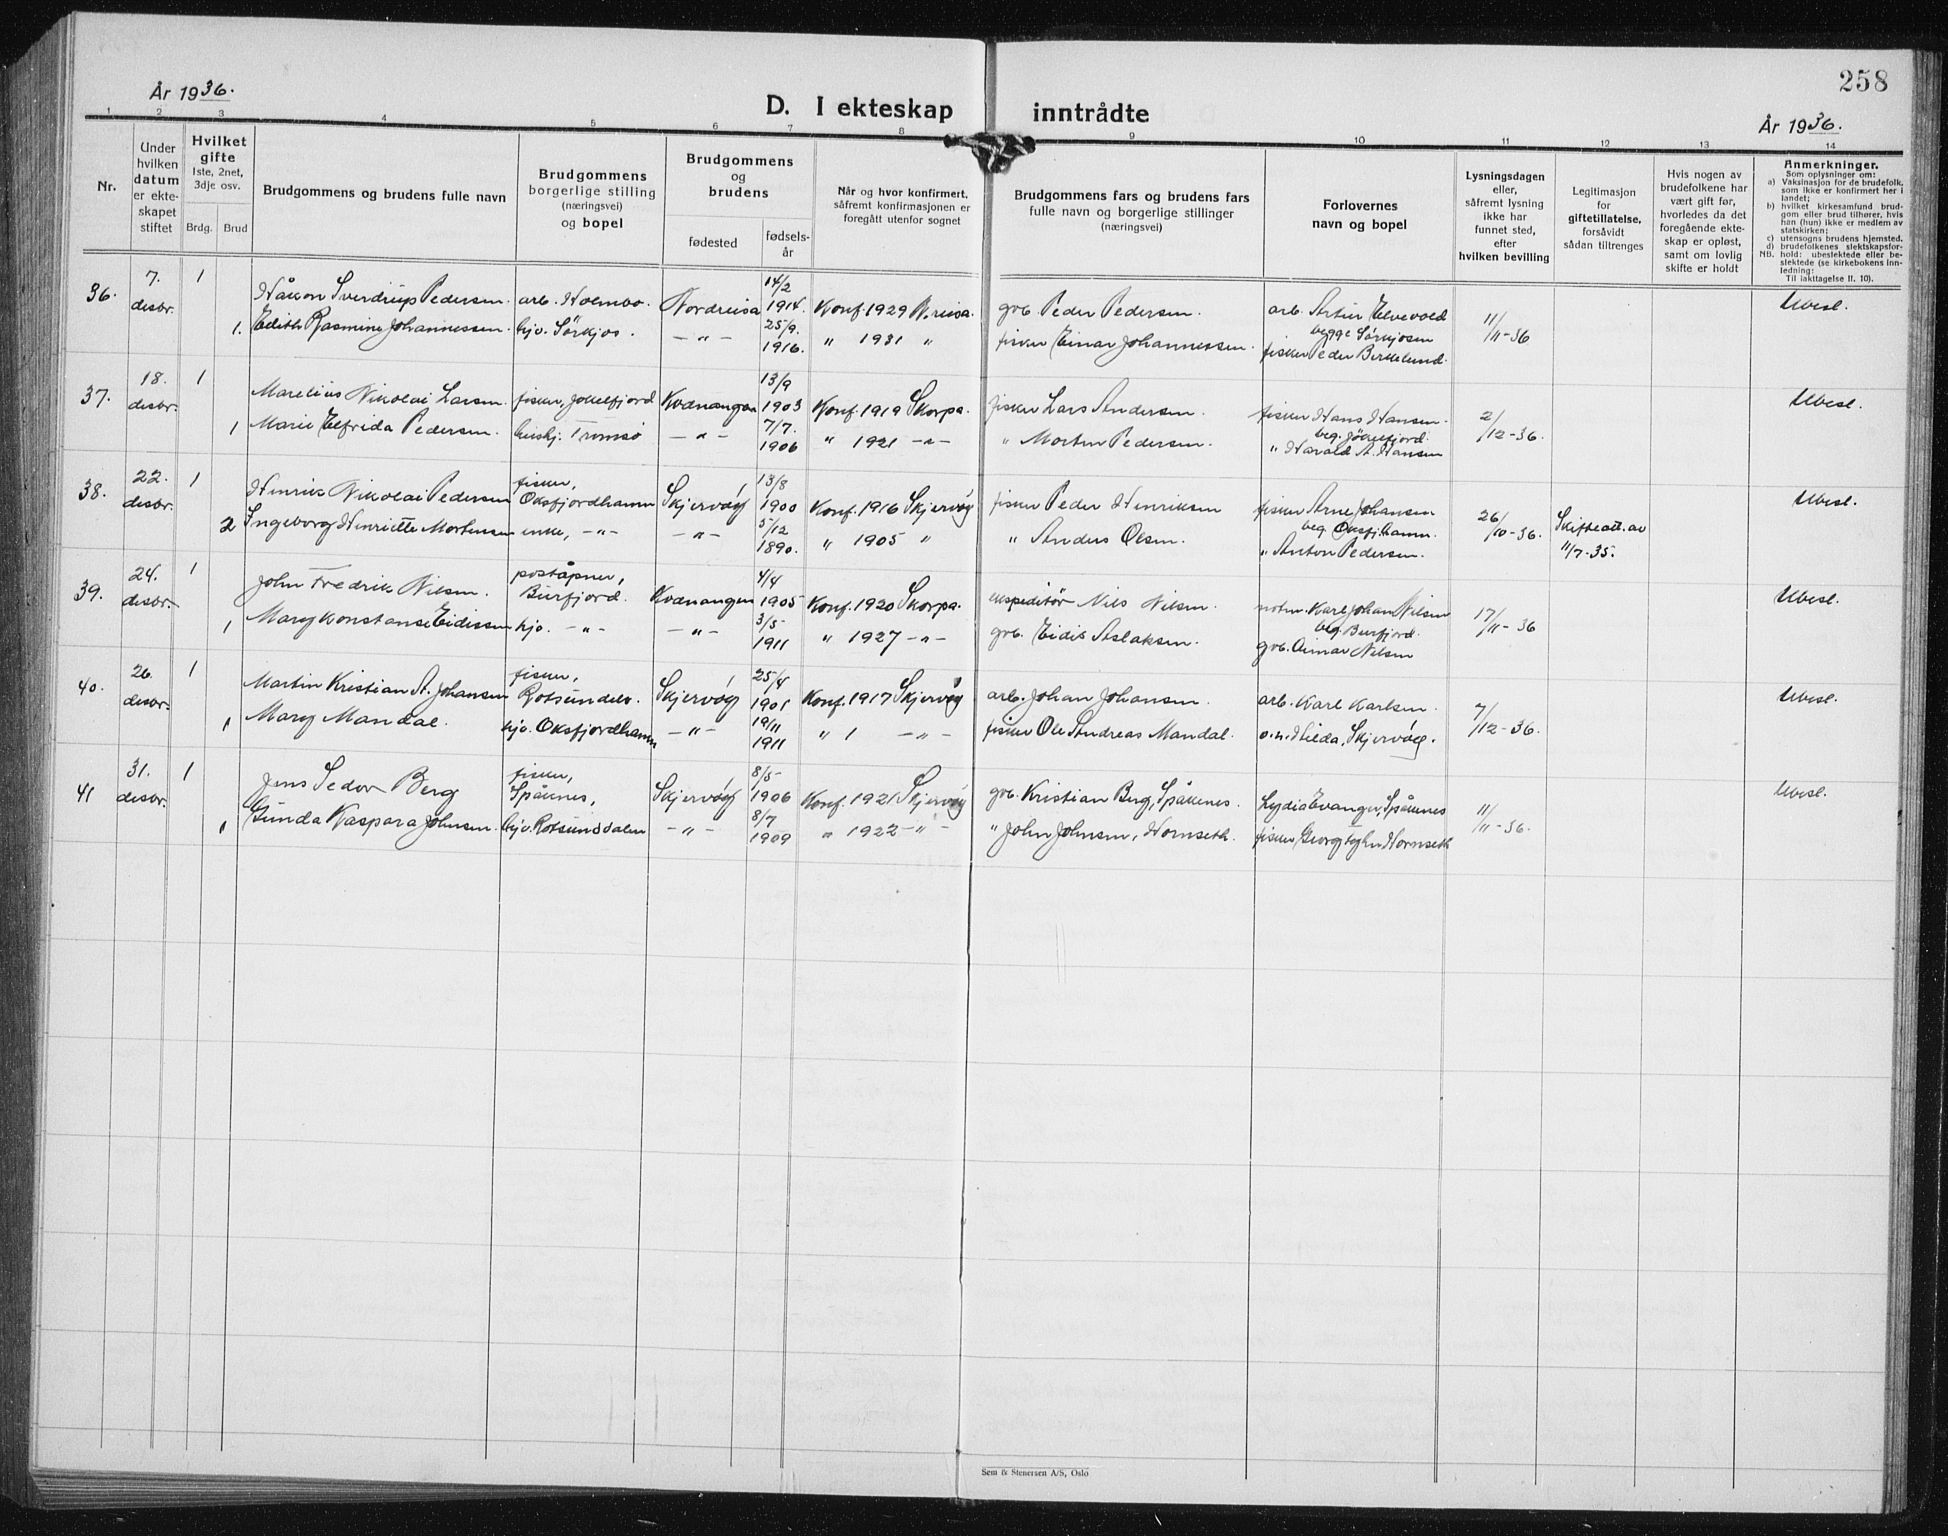 258
År 1936.
D. I ekteskap inntrådte
År 1936.
1 2 3 4 5 6 7 8 9 10 11 12 13 14
Nr.
Under hvilken datum er ekteskapet stiftet
Hvilket gifte
1ste, 2net, 3dje osv.
Brdg. Brud
Brudgommens og brudens fulle navn
Brudgommens borgerlige stilling (næringsvei) og bopel
Brudgommens og brudens
fødested
fødselsår
Når og hvor konfirmert, såfremt konfirmasjonen er foregått utenfor sognet
Brudgommens fars og brudens fars fulle navn og borgerlige stillinger (næringsvei)
Forlovernes navn og bopel
Lysningsdagen eller, såfremt lysning ikke har funnet sted, efter hvilken bevilling
Legitimasjon for giftetillatelse, forsåvidt sådan tiltrenges
Hvis nogen av brudefolkene har vært gift før, hvorledes da det foregående ekteskap er opløst, samt om lovlig skifte er holdt
Anmerkninger.
Som oplysninger om:
a) Vaksinasjon for de brudefolk, som ikke er konfirmert her i landet;
b) hvilket kirkesamfund brudgom eller brud tilhører, hvis han (hun) ikke er medlem av statskirken;
c) utensogns brudens hjemsted.
d) brudefolkenes slektskapsforhold: ubeslektede eller beslektede (se kirkebokens innledning:
NB. Til iakttagelse II. 10).
36. 7. desbr. 1 Håkon Sverdrup Pedersen arb. Holmbo. Nordreisa 14/2 1914. Konf. 1929 N.reisa. grb. Peder Pedersen. arb. Artur Elvevold 11/11-36 Ubesl.
1. Edith Rasmine Johannessen hjv. Sørkjos. -"- 25/9. 1916. " 1931 " fisker Einar Johannessen. begge Sørkjosen fisker Peder Birkelund.
37. 18. desbr. 1 Marelius Nikolai Larsen fisker, Jøkelfjord Kvænangen 13/9 1903 Konf. 1919 Skorpa. fisker Lars Andersen. fisker Hans Hansen. 2/12-36. Ubesl.
1 Marie Elfrida Pedersen. Tromsø -"- 7/7. 1906 " 1921 -"- " Morten Pedersen. beg. Jøkelfjord. " Harald A. Hansen
38. 22. desbr. 1 Henrik Nikolai Pedersen fisker, Oksfjordhamn Skjervøy 13/8 1900 Konf. 1916 Skjervøy fisker Peder Henriksen fisker Arne Johansen 26/10-36. Skifteatt. av 11/7-35. Ubesl.
2 Ingeborg Henriette Mortensen enke, -"- -"- 5/12 1890. " 1905 " " Anders Olsen. beg. Oksfj.hamn. " Anton Pedersen.
39. 24. desbr. 1 John Fredrik Nilsen. poståpner, Burfjord. Kvænangen 4/4 1905 Konf. 1920 Skorpa. ekspeditør Nils Nilsen. Karl Johan Nilsen 17/11-36 Ubesl.
1 Mary Konstanse Eidissen hjv. -"- -"- 3/5 1911 " 1927 -"- grb. Eidis Aslaksen. beg. Burfjord. grb. Nilsen
40. 26. desbr. 1 Martin Kristian A. Johansen fisker, Rotsundelv. Skjervøy 25/4 1901 Konf. 1917 Skjervøy arb. Johan Johansen. arb. Karl Karlsen. 7/12-36. Ubesl.
1 Mary Mandal. hjv. Oksfjordhamn -"- 19/11 1911 " 1 -"- fisker Ole Andreas Mandal. o.h. Hilda, Skjervøy.
41 31. desbr. 1 Jens Sedor Berg fisker, Spåknes, Skjervøy 8/5 1906 Konf. 1921 Skjervøy grb. Kristian Berg, Spåknes. Lydia Evanger, Spåknes 11/11-36. Ubesl.
1 Gunda Kaspara Johnsen. hjv. Rotsunddalen -"- 8/7 1909 " 1922 -"- " John Johnsen, Hornseth. fisker Georg Hornseth
Sem & Stenersen A/S, Oslo